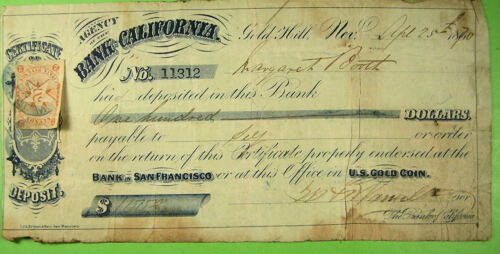 CERTIFICATE
DEPOSIT.
AGENCY
OF THE
BANK OF CALIFORNIA.
Gold Hill, Nev. Sept 25th 18
No. 11312
Margaret Booth
has deposited in this Bank
One hundred DOLLARS.
payable to Self or order
on the return of this Certificate properly endorsed at the
BANK IN SAN FRANCISCO or at this Office in U.S. GOLD COIN.
$ 100
for
The Bank of California